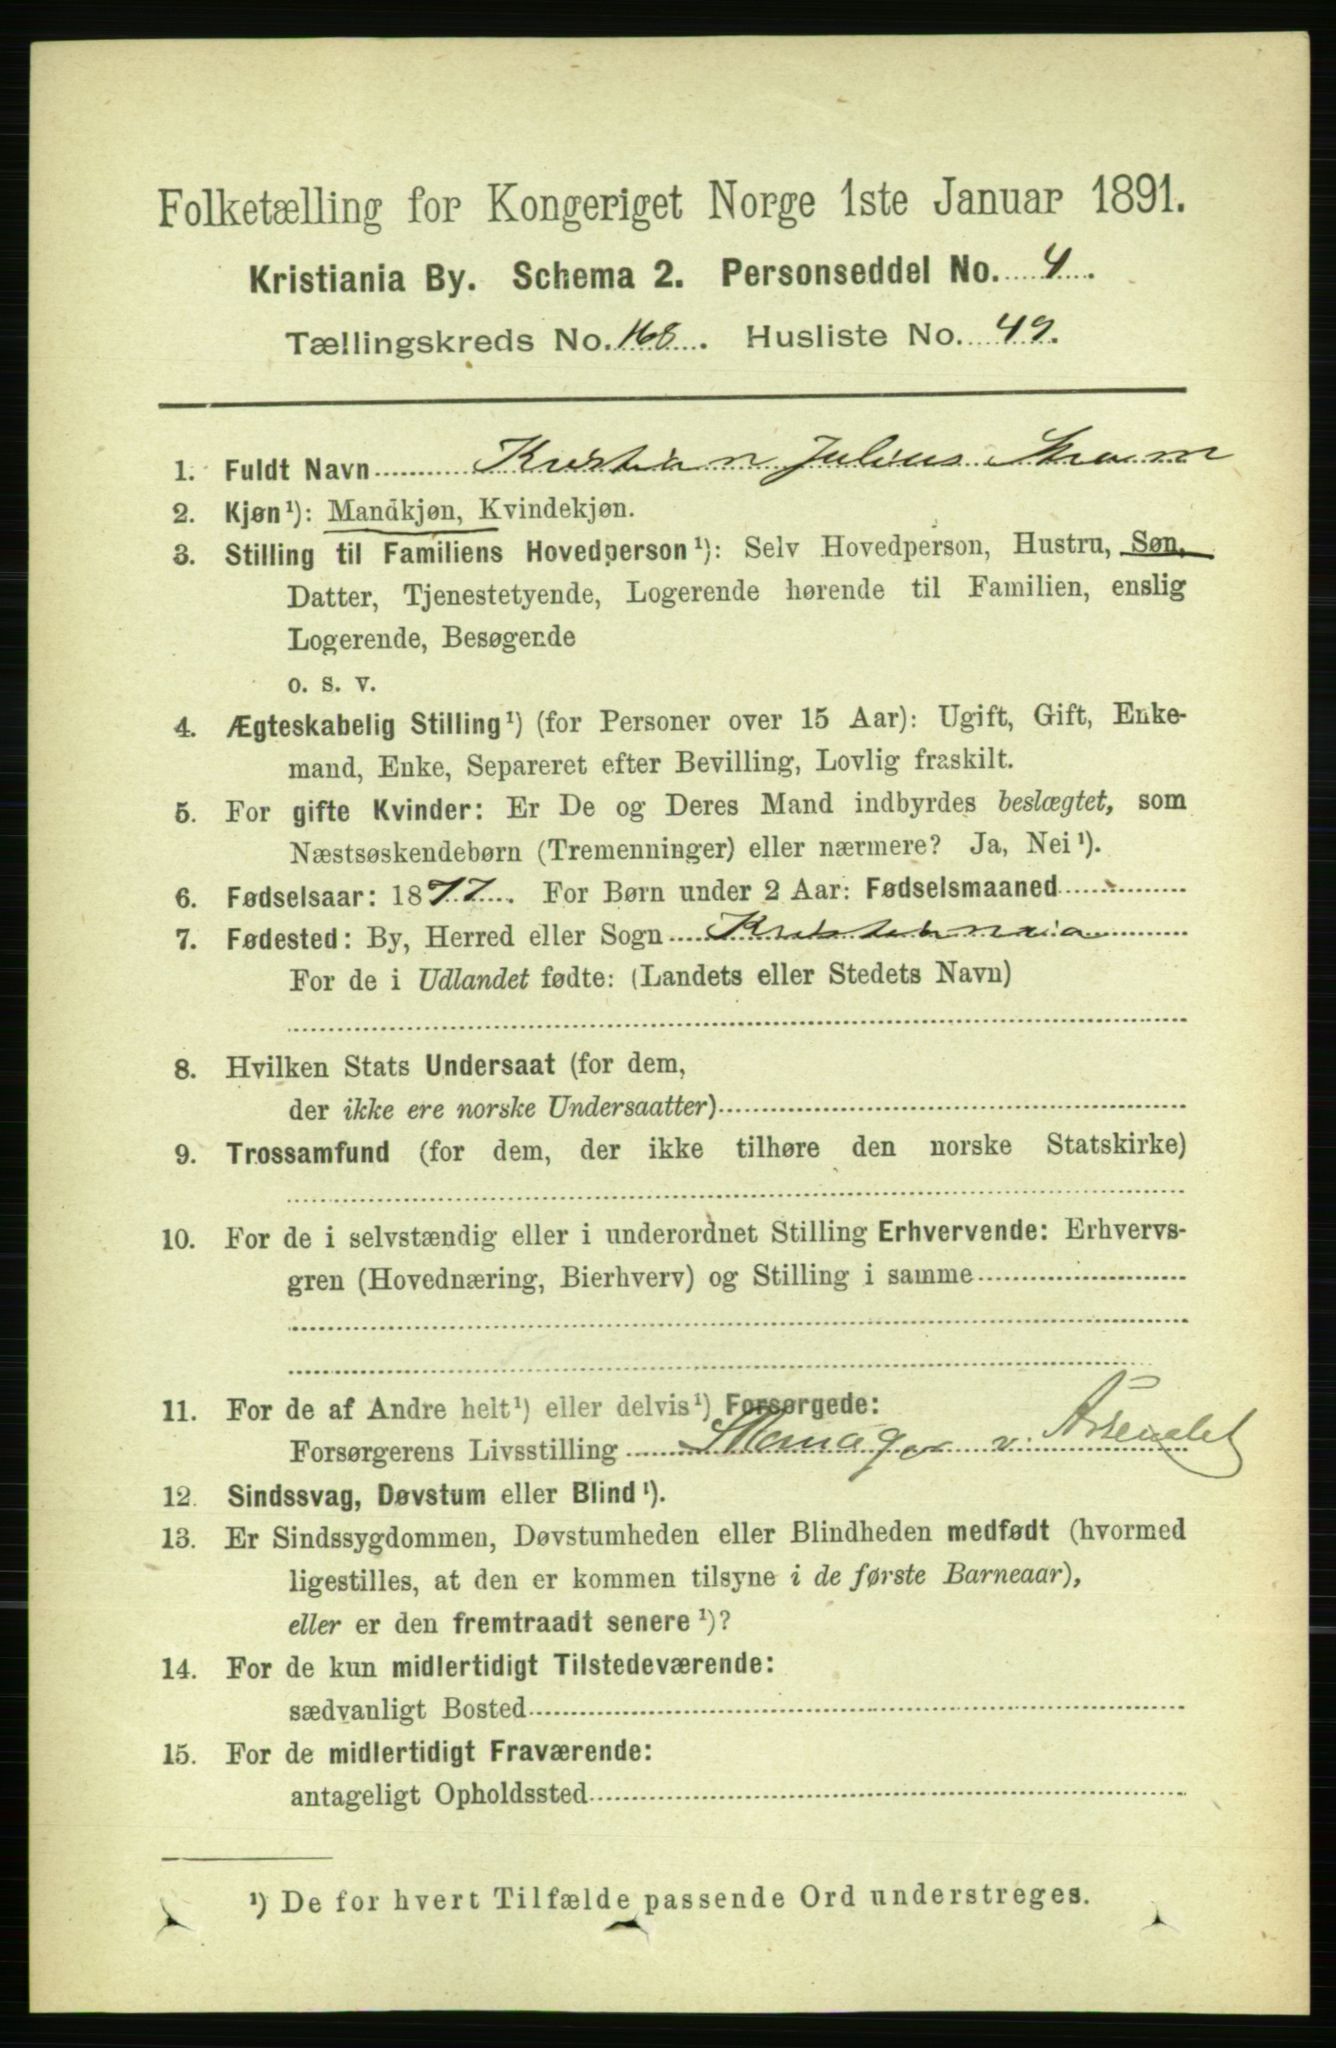 Folketælling for Kongeriget Norge 1ste Januar 1891.
Kristiania By. Schema 2. Personseddel No. 4.
Tællingskreds No. 168. Husliste No. 49.
1. Fuldt Navn Kristian Julius Strøm
2. Kjøn¹): Mandkjøn, Kvindekjøn.
3. Stilling til Familiens Hovedperson¹): Selv Hovedperson, Hustru, Søn,
Datter, Tjenestetyende, Logerende hørende til Familien, enslig
Logerende, Besøgende
o. s. v.
4. Ægteskabelig Stilling¹) (for Personer over 15 Aar): Ugift, Gift, Enke-
mand, Enke, Separeret efter Bevilling, Lovlig fraskilt.
5. For gifte Kvinder: Er De og Deres Mand indbyrdes beslægtet, som
Næstsøskendebørn (Tremenninger) eller nærmere? Ja, Nei¹).
6. Fødselsaar: 1877. For Børn under 2 Aar: Fødselsmaaned
7. Fødested: By, Herred eller Sogn Kristiania
For de i Udlandet fødte: (Landets eller Stedets Navn)
8. Hvilken Stats Undersaat (for dem,
der ikke ere norske Undersaatter)
9. Trossamfund (for dem, der ikke tilhøre den norske Statskirke)
10. For de i selvstændig eller i underordnet Stilling Erhvervende: Erhvervs-
gren (Hovednæring, Bierhverv) og Stilling i samme
11. For de af Andre helt¹) eller delvis¹) Forsørgede:
Forsørgerens Livsstilling v. Arsenalet
12. Sindssvag, Døvstum eller Blind¹).
13. Er Sindssygdommen, Døvstumheden eller Blindheden medfødt (hvormed
ligestilles, at den er kommen tilsyne i de første Barneaar),
eller er den fremtraadt senere¹)?
14. For de kun midlertidigt Tilstedeværende:
sædvanligt Bosted
15. For de midlertidigt Fraværende:
antageligt Opholdssted
¹) De for hvert Tilfælde passende Ord understreges.